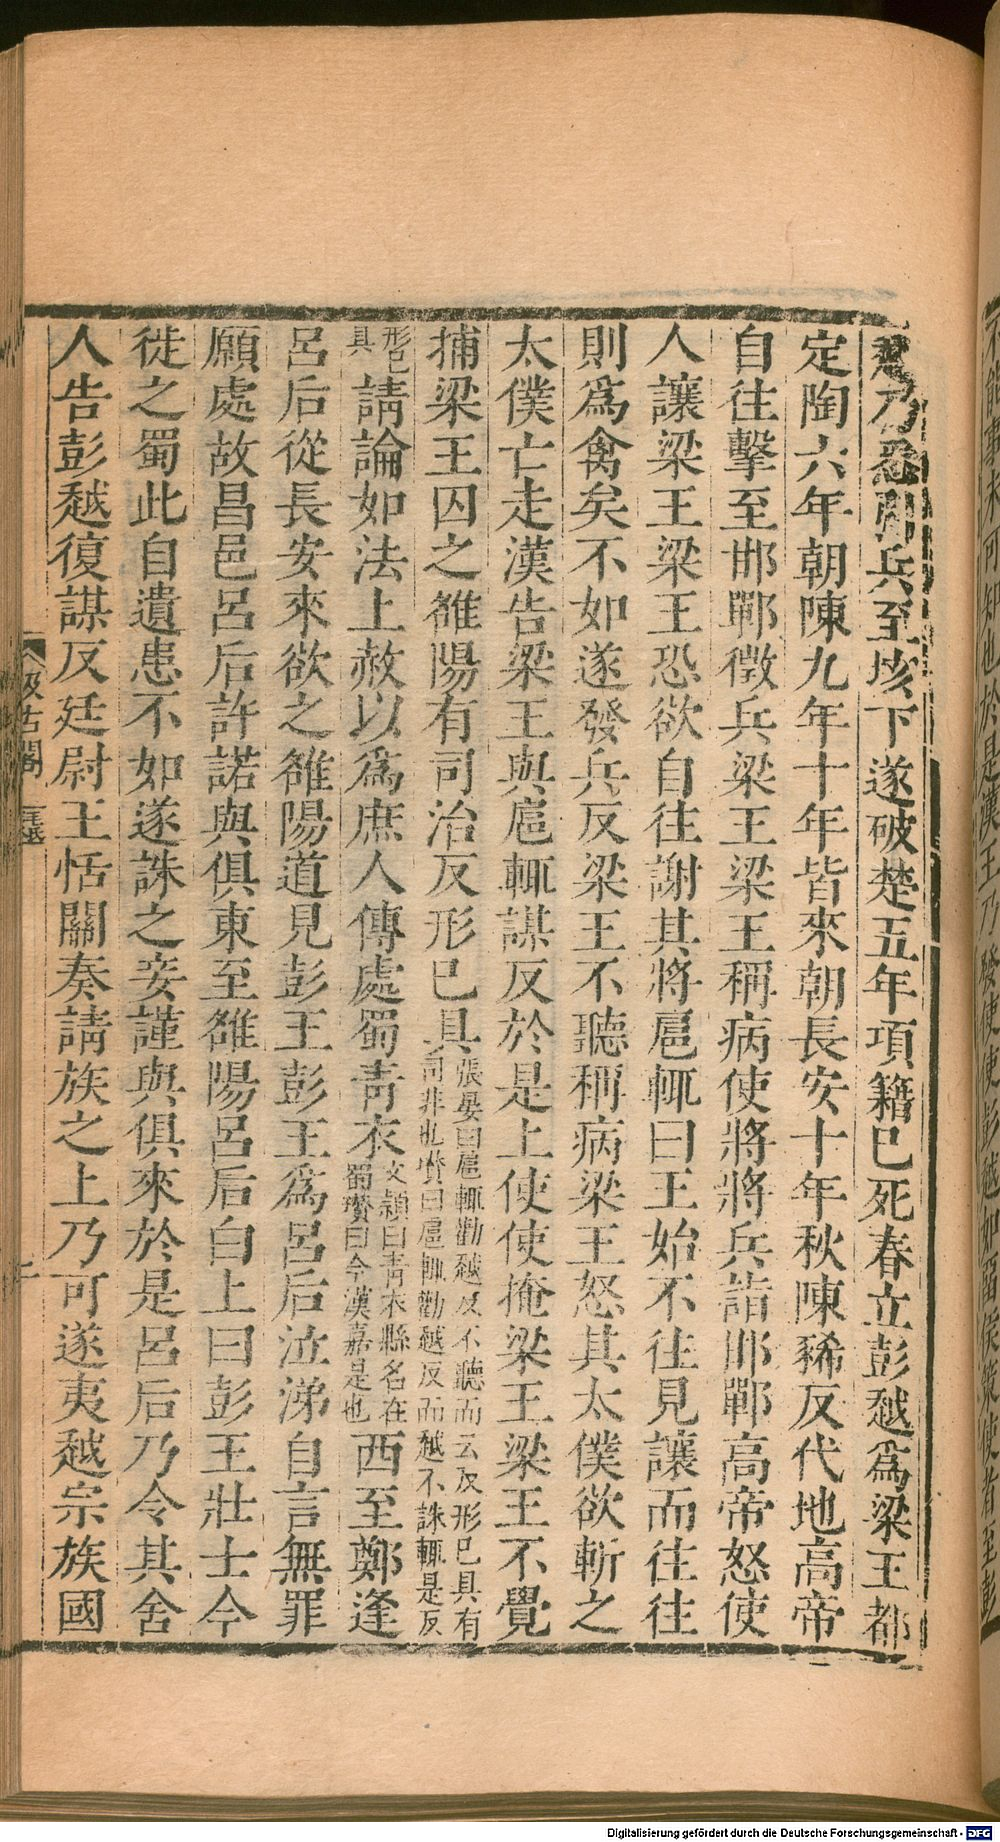 越乃悉引兵至垓下遂破楚五年項籍已死春立彭越爲梁王都
定陶六年朝陳九年十年皆來朝長安十年秋陳豨反代地高帝
自往擊至邯鄲徵兵梁王梁王稱病使將將兵詣邯鄲高帝怒使
人讓梁王梁王恐欲自往謝其將扈輒曰王始不往見讓而往往
則爲禽矣不如遂發兵反梁王不聽稱病梁王怒其太僕欲斬之
太僕亡走漢告梁王與扈輒謀反於是上使使掩梁王梁王不覺
捕梁王囚之雒陽有司治反形已具張晏曰扈輒勸越反不聽而云反形已具有司非也瓚曰扈輒勸越反而越不誅輒是反
形已具請論如法上赦以爲庶人傳處蜀青衣文穎曰青衣縣名在蜀瓚曰今漢嘉是也西至鄭逢
呂后從長安來欲之雒陽道見彭王彭王爲呂后泣涕自言無罪
願處故昌邑呂后許諾與俱東至雒陽呂后白上曰彭王壯士今
徙之蜀此自遺患不如遂誅之妾謹與俱來於是呂后乃令其舍
人告彭越復謀反廷尉王恬關奏請族之上乃可遂夷越宗族國
汲古閣